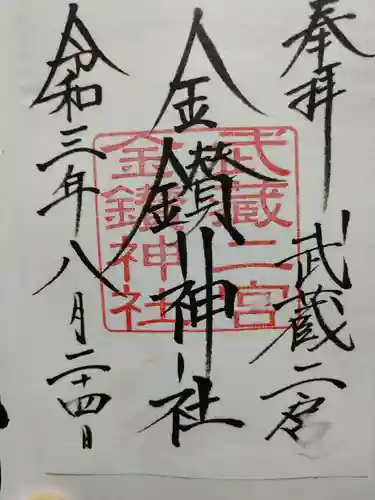 奉拝 武蔵二宮
金鑚神社
令和三年八月二十四日
武蔵二宮
金鑚神社